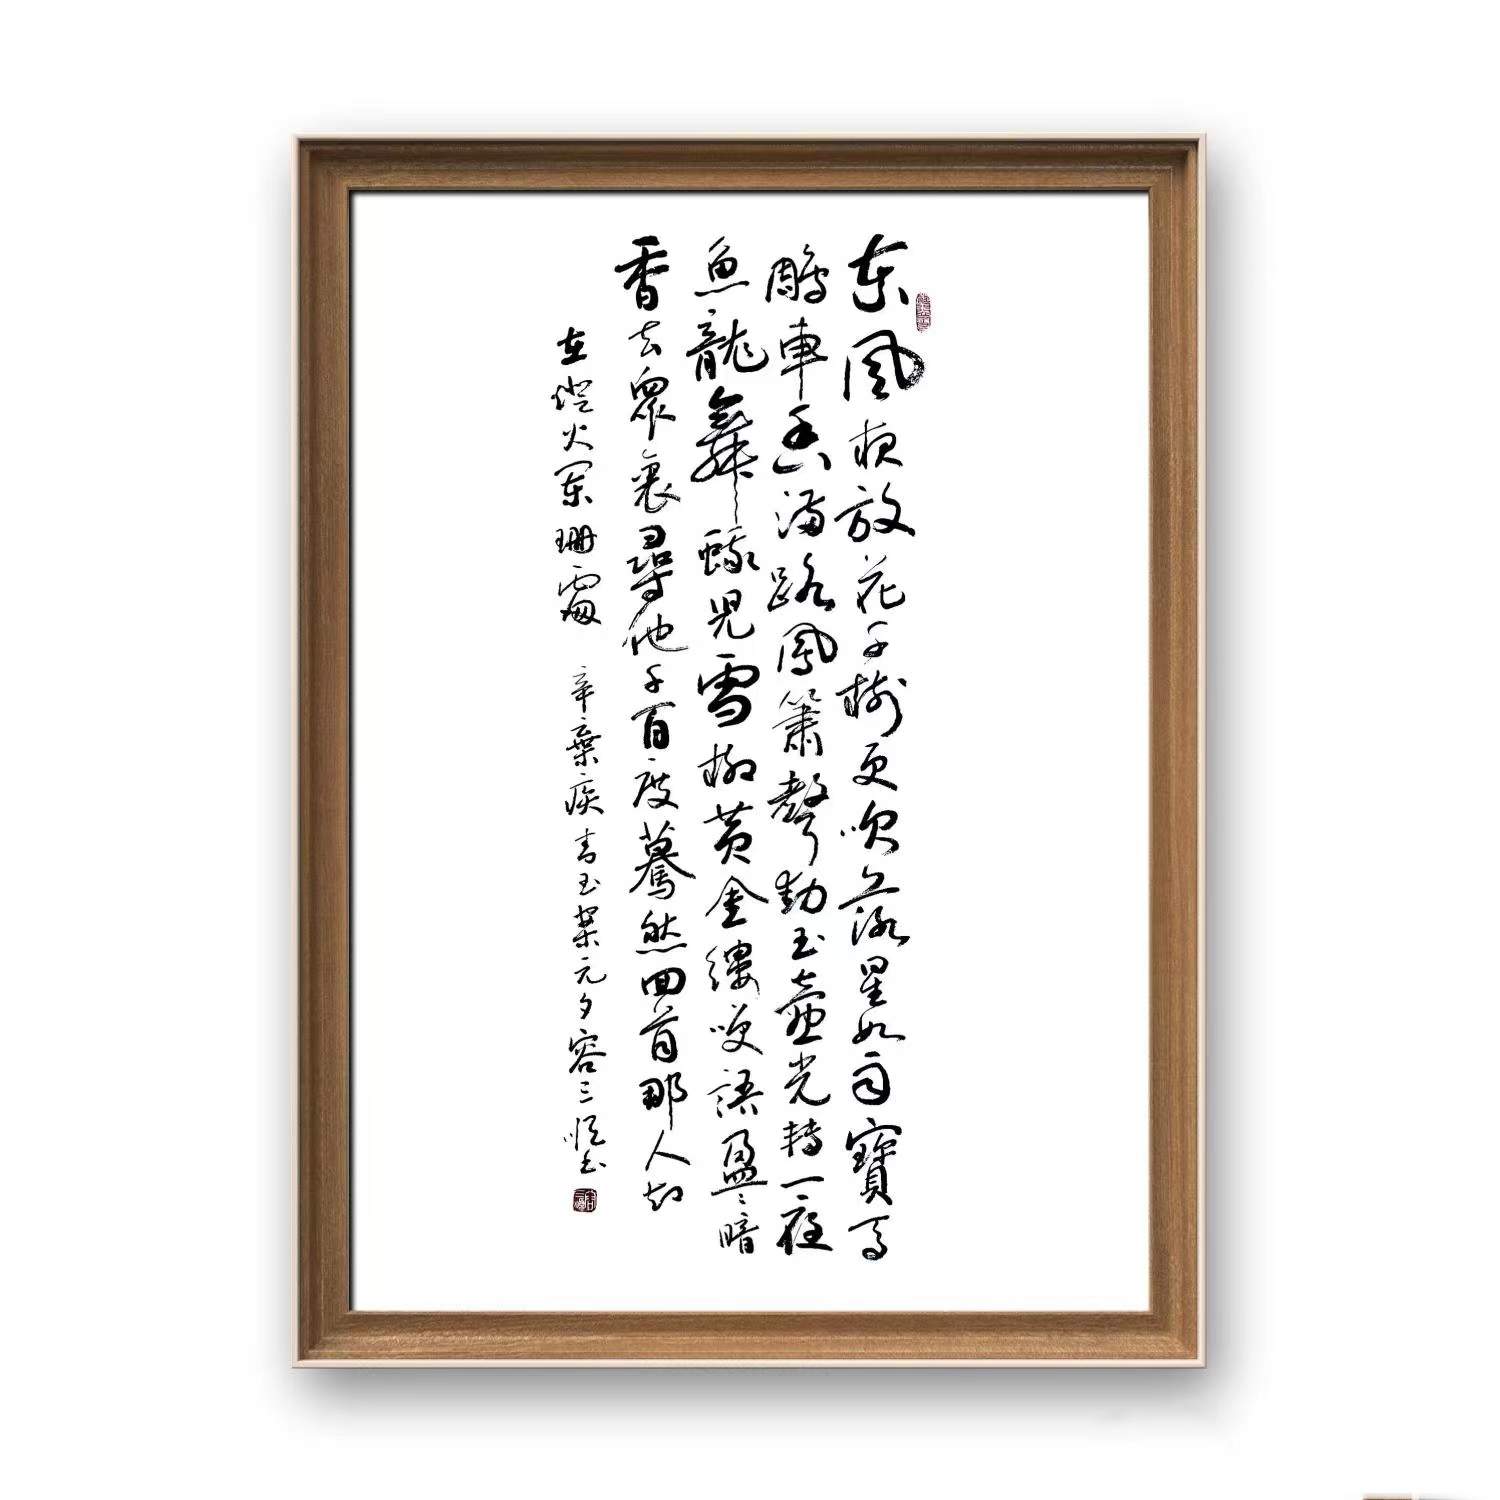 东风夜放花千樹更吹落星如雨寶马
雕車香满路鳳簫聲動玉壶光转一夜
魚龍舞蛾兒雪柳黄金缕笑语盈〻暗
香去眾裏尋他千百度驀然回首那人却
在燈火阑珊處 辛棄疾青玉案元夕容三恒书